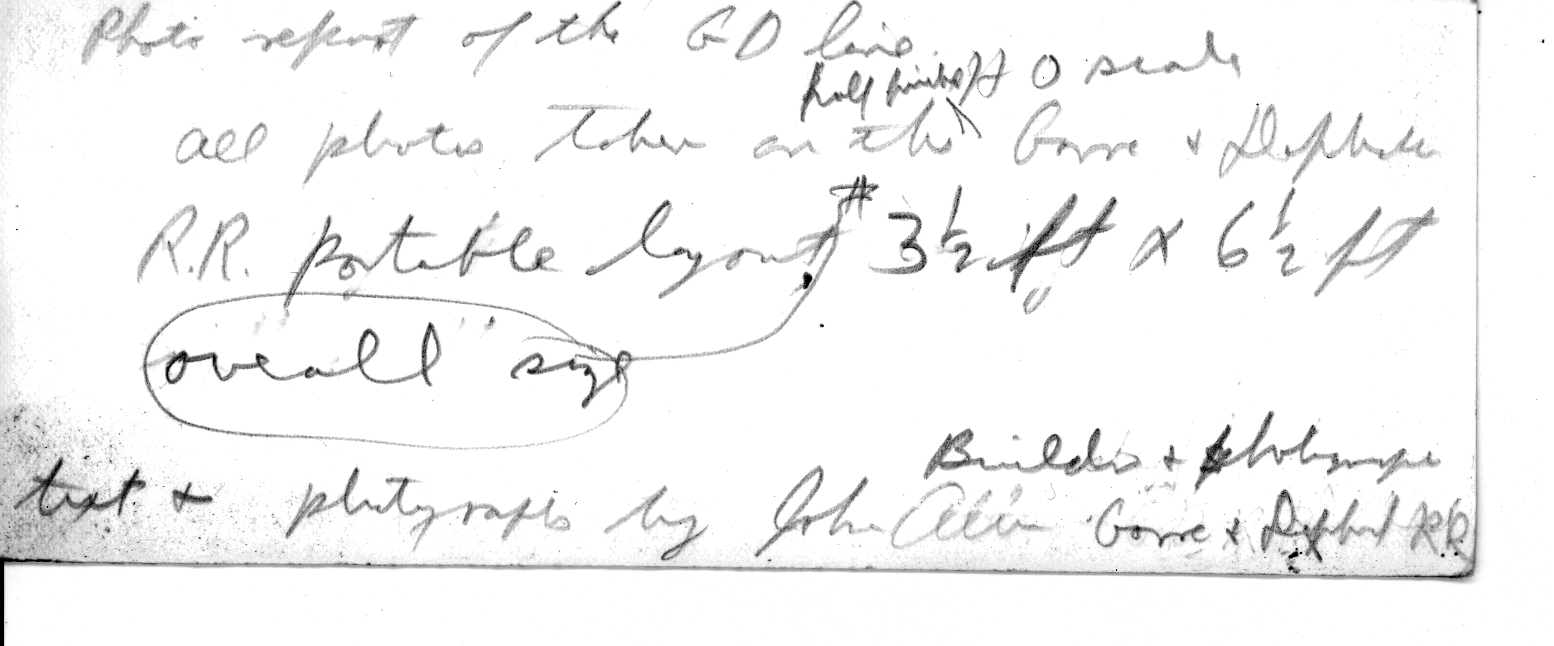 Photo report of the GD line.
half finished O scale
all photos taken on the Gorre & Daphetid
R.R. portable layout. # 3 1/2 ft x 6 1/2 ft
"overall" size
Builder & photographer
text & photographs by John Allen Gorre & Daphetid R.R.